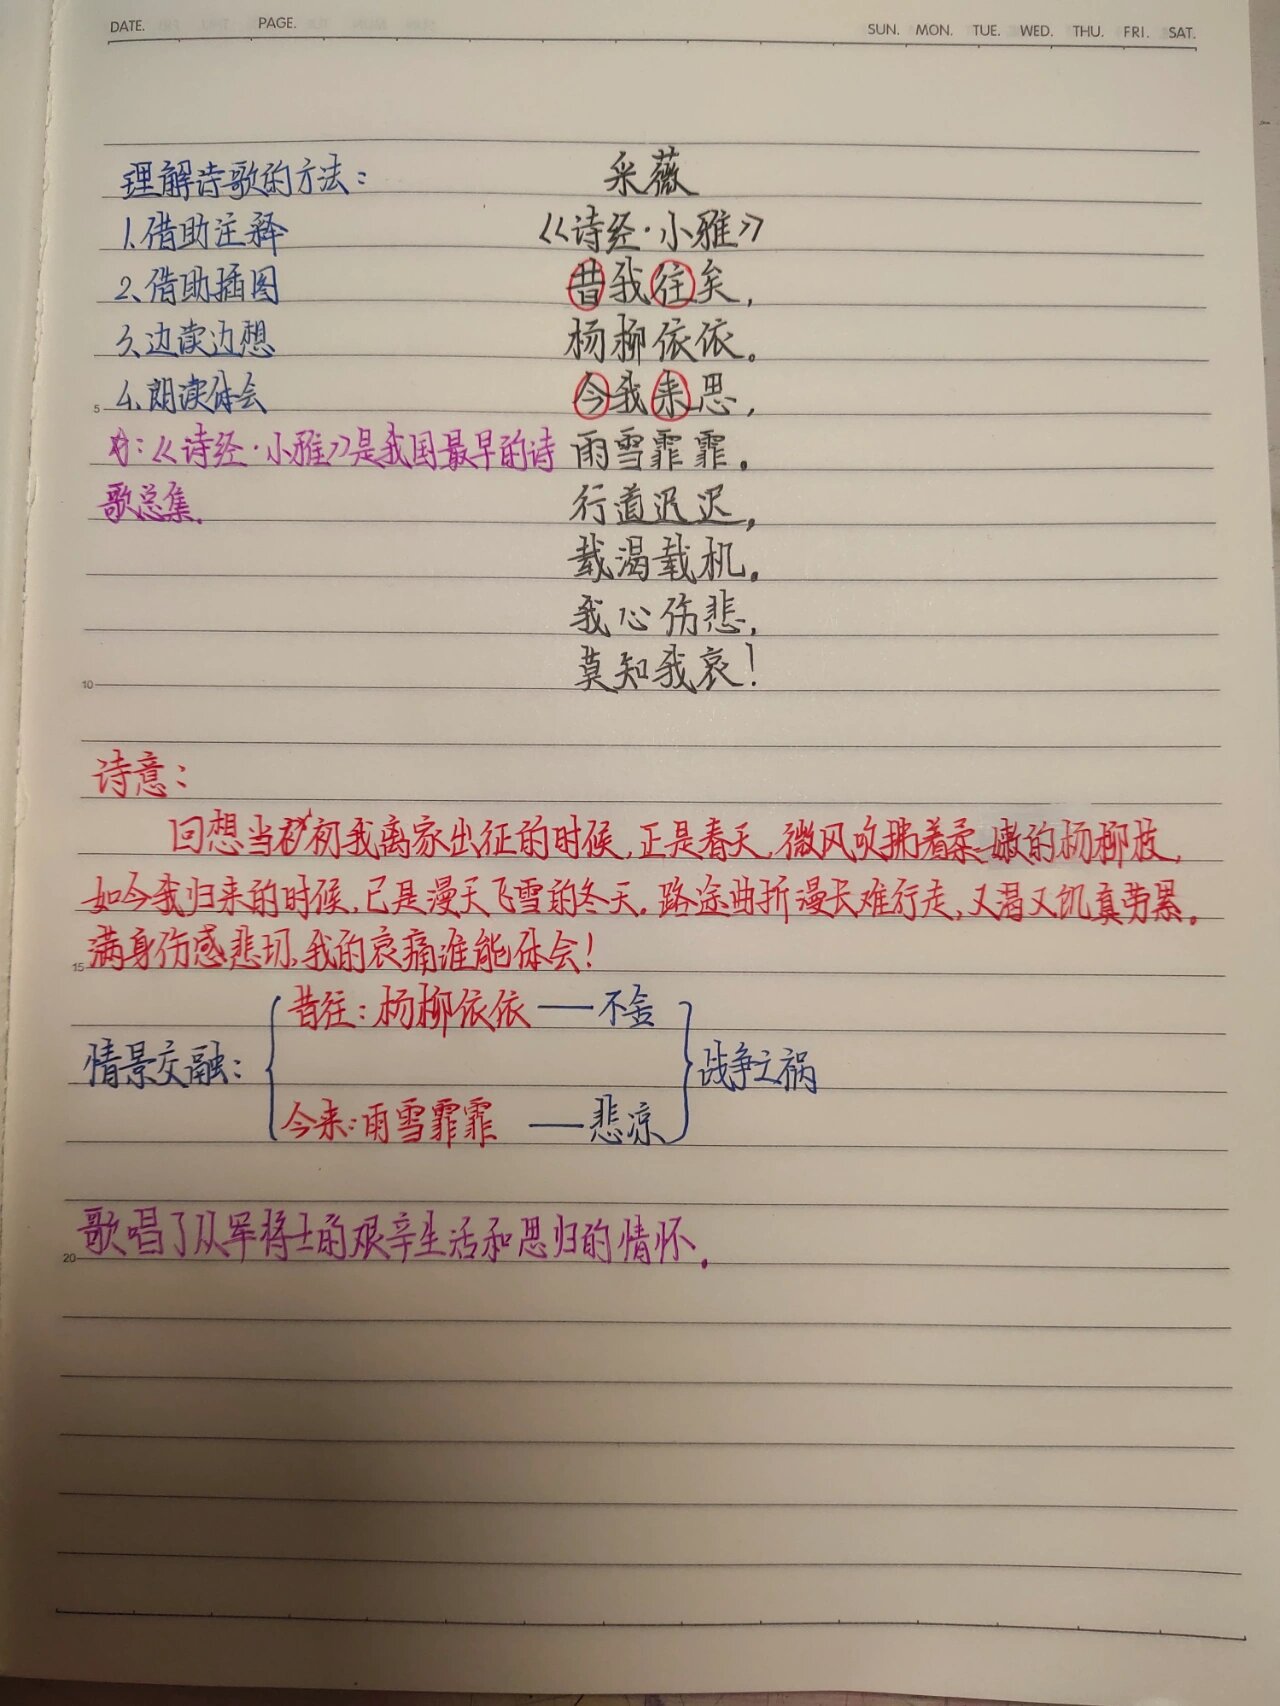 DATE. PAGE. SUN. MON. TUE. WED. THU. FRI. SAT.
理解诗歌的方法：
1、借助注释
2、借助插图
3、边读边想
4、朗读体会
《诗经·小雅》是我国最早的诗
歌总集.
采薇
《诗经·小雅》
昔我往矣，
杨柳依依。
今我来思，
雨雪霏霏。
行道迟迟，
载渴载机。
我心伤悲，
莫知我哀！
诗意：
回想当初我离家出征的时候，正是春天，微风吹拂着柔嫩的杨柳枝，
如今我归来的时候，已是漫天飞雪的冬天。路途曲折漫长难行走，又渴又饥真劳累。
满身伤感悲切，我的哀痛谁能体会！
情景交融：
昔往：杨柳依依——不舍
今来：雨雪霏霏——悲凉
战争之祸
歌唱了从军将士的艰辛生活和思归的情怀。
5
10
15
20